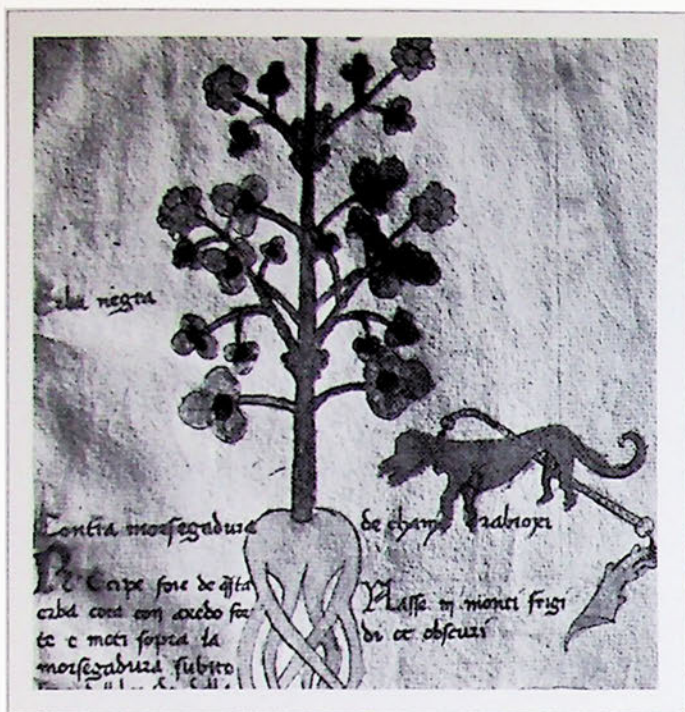 Erba negra
Contra morsegadura de chani rabioxi
Recipe foie de q̃sta
erba cota con axedo for
te e meti sopra la
morsegadura subito
Nasse in monti frigi
di et obscuri